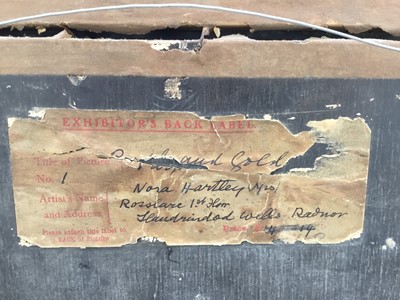 EXHIBITOR'S BACK LABEL.
Title of Picture and Gold
No. 1
Artist's Name Nora Hartley Mrs,
and Address Rossiare 1st Floor
Llandrindod Wells Radnor
Please attach this label to
BACK of Picture